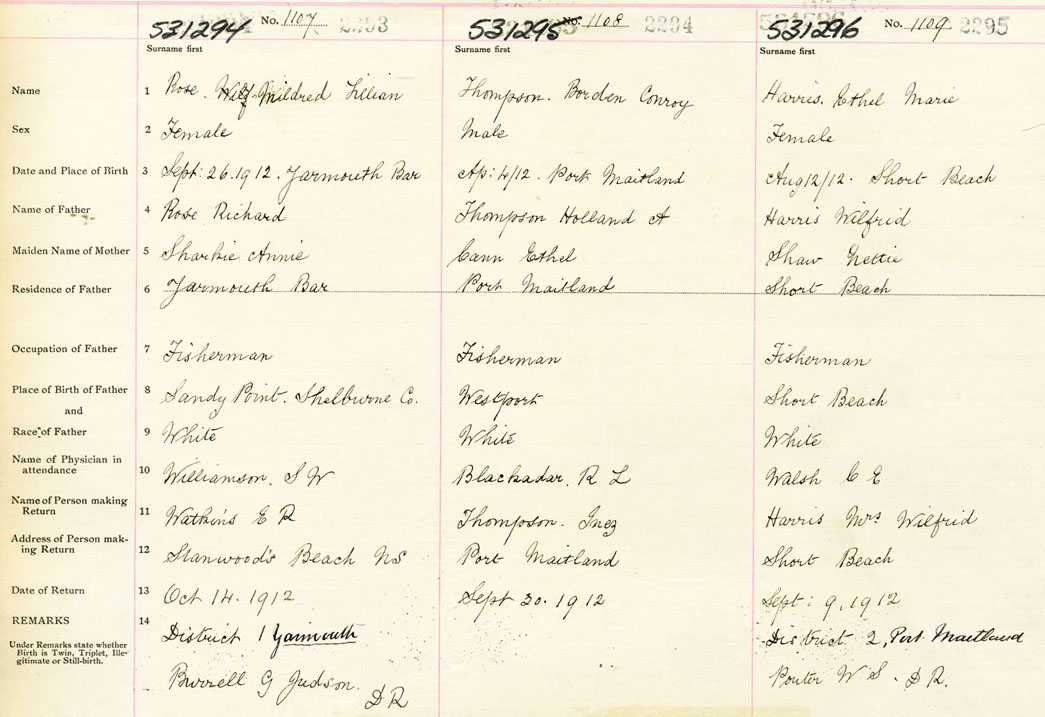 531294 No. 1107 2293 531295 No. 1108 2294 531296 No. 1109 2295
Surname first Surname first Surname first
Name 1 Rose. Mildred Lillian Thompson. Borden Conroy Harris. Ethel Marie
Sex 2 Female Male Female
Date and Place of Birth 3 Sept: 26.1912. Yarmouth Bar Ap: 4/12. Port Maitland Aug 12/12. Short Beach
Name of Father 4 Rose Richard Thompson Holland A Harris Wilfrid
Maiden Name of Mother 5 Sharkie Annie Cann Ethel Shaw Nettie
Residence of Father 6 Yarmouth Bar Port Maitland Short Beach
Occupation of Father 7 Fisherman Fisherman Fisherman
Place of Birth of Father 8 Sandy Point. Shelburne Co. Westport Short Beach
and
Race of Father 9 White White White
Name of Physician in
attendance 10 Williamson. S W Blackadar. R L Walsh C E
Name of Person making
Return 11 Watkins E R Thompson. Inez Harris Mrs Wilfrid
Address of Person mak-
ing Return 12 Stanwood's Beach NS Port Maitland Short Beach
Date of Return 13 Oct 14. 1912 Sept 30. 1912 Sept: 9. 1912
REMARKS 14 District 1 Yarmouth District 2, Port Maitland
Under Remarks state whether
Birth is Twin, Triplet, Ille-
gitimate or Still-birth.
Burrell G Judson. D R Porter W S. D R.